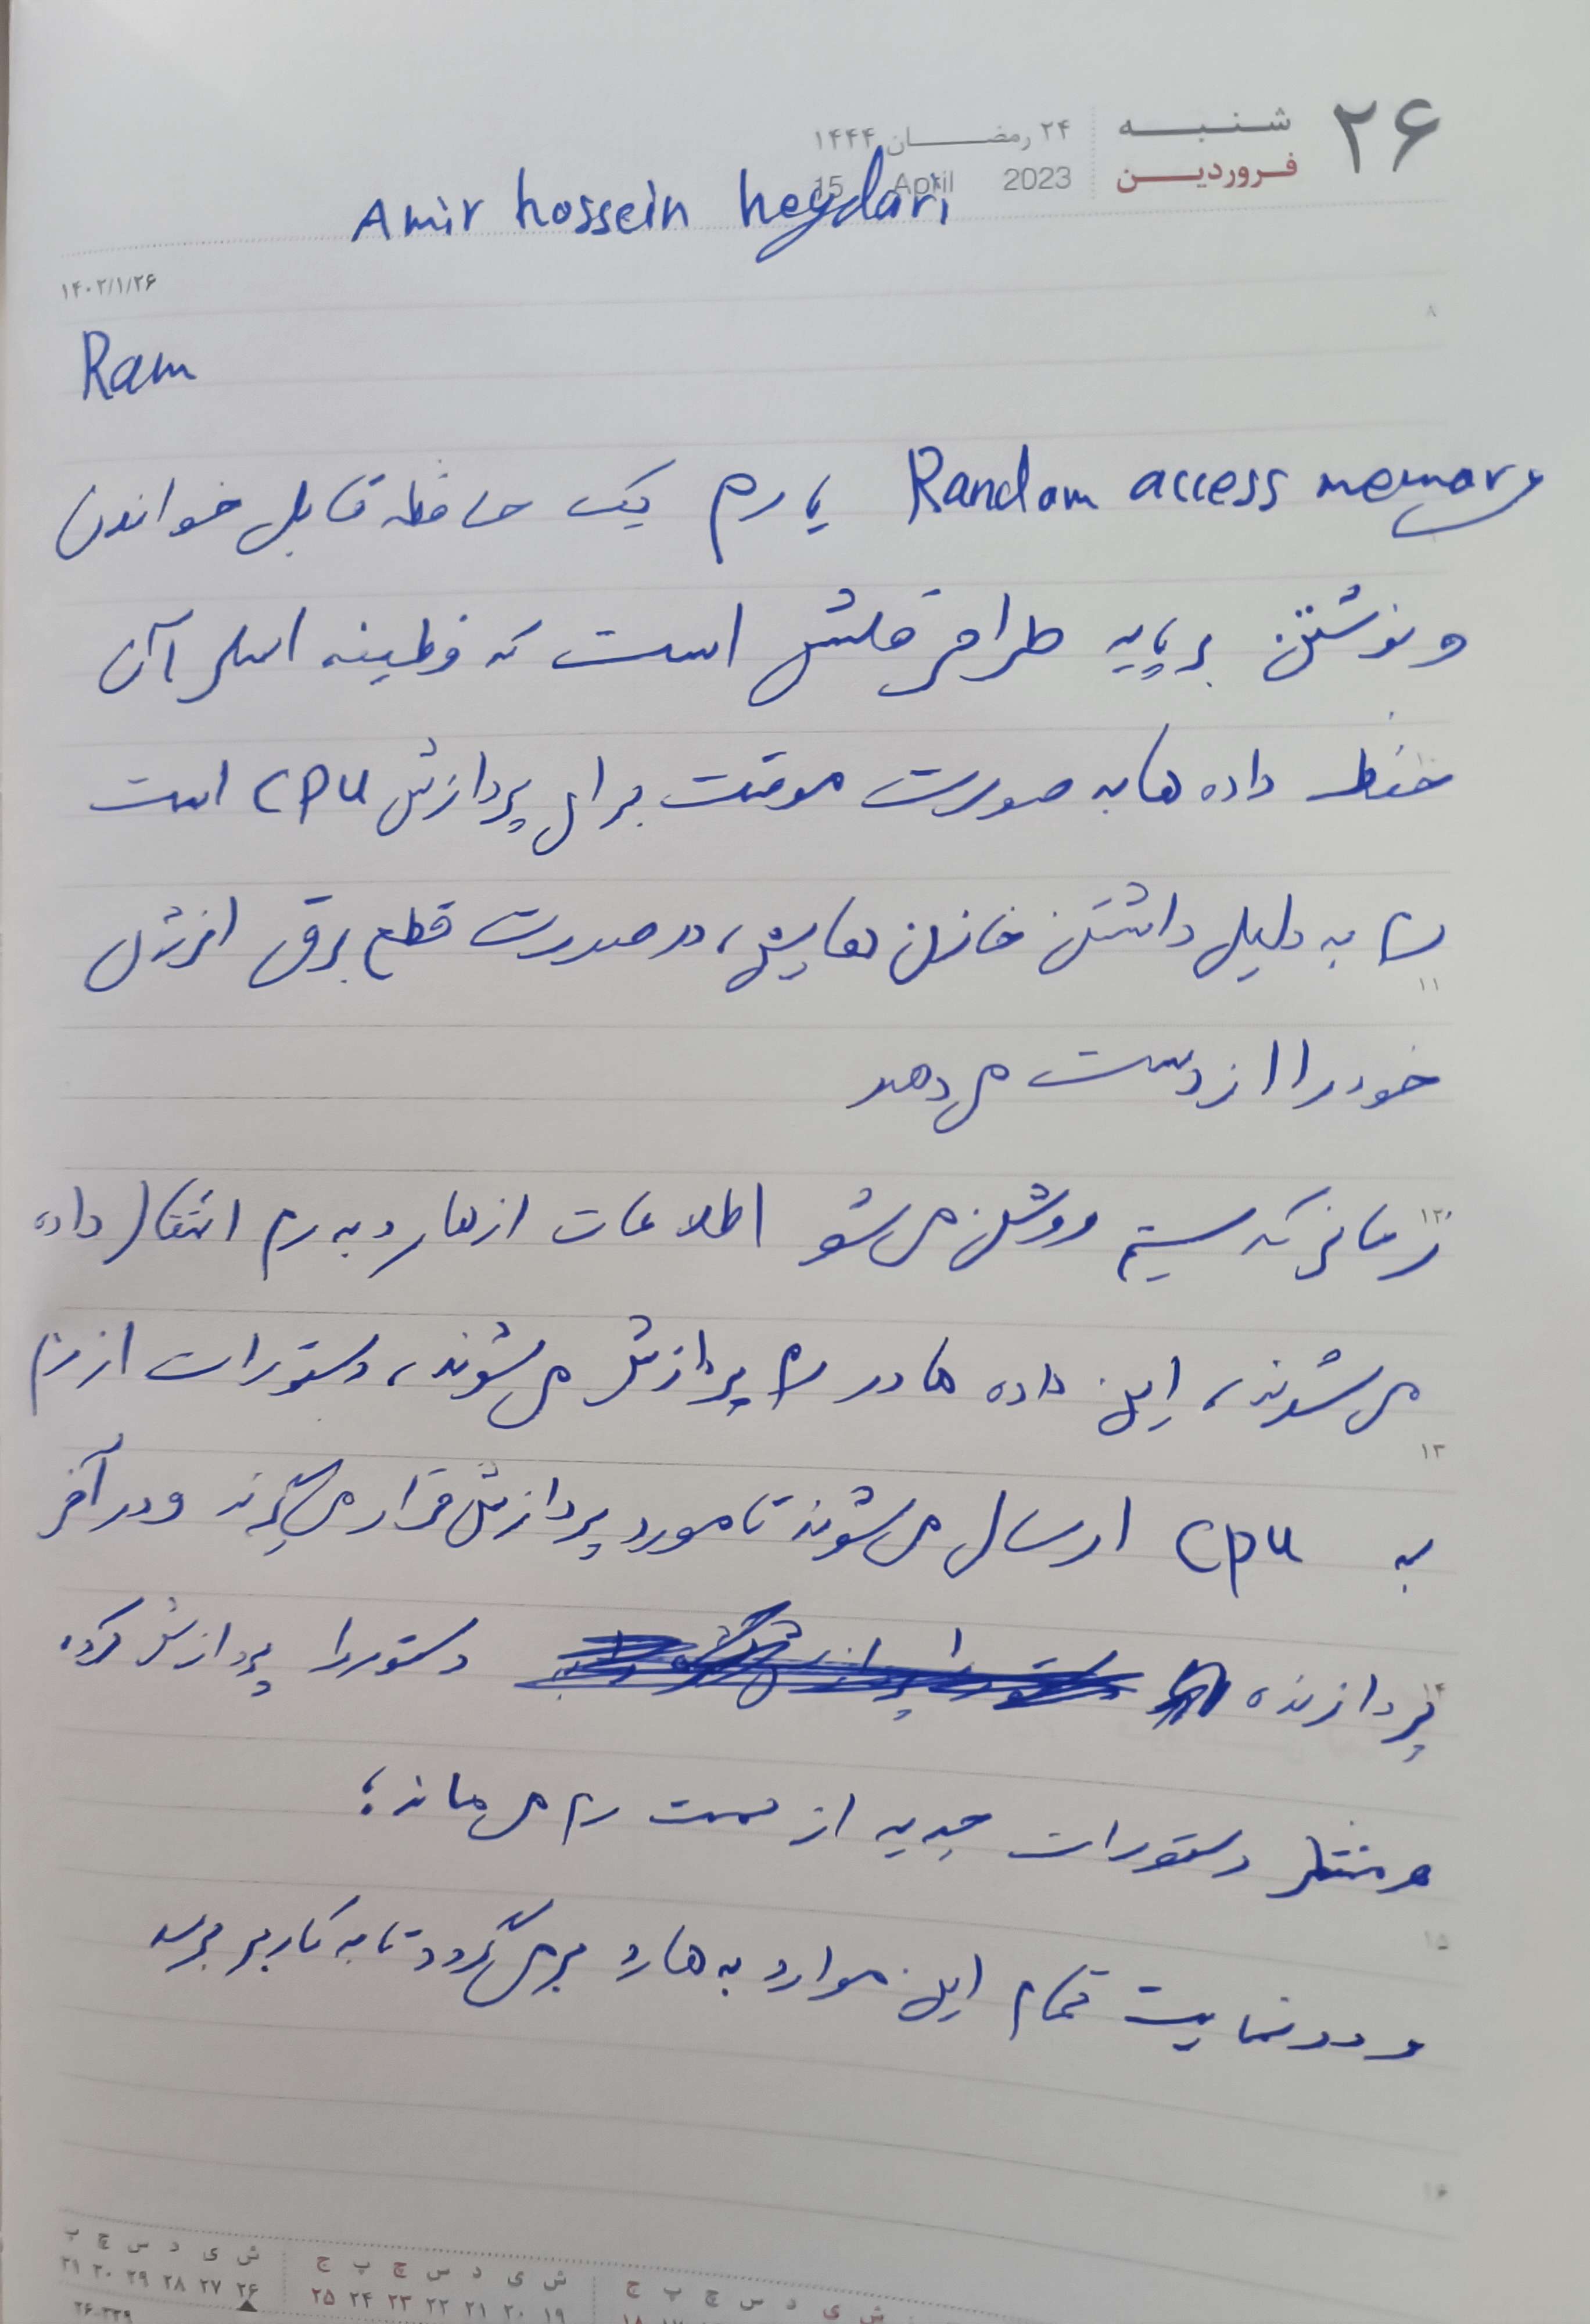 ۲۶ شنبه ۲۴ رمضان ۱۴۴۴
فروردین 2023 April 15
Amir hossein heydari
۱۴۰۲/۱/۲۶
۸
Ram
Random access memory یا رم یک حافظه قابل خواندن
و نوشتن بر پایه طراحی فلش است که وظیفه اصلی آن
حفظ داده ها به صورت موقت برای پردازش cpu است
رم به دلیل داشتن خازن هایش، در صورت قطع برق انرژی
۱۱
خود را از دست می دهد
۱۲
زمانی که سیستم روشن می شو اطلاعات از هارد به رم انتقال داده
می شوند، این داده ها در رم پردازش می شوند، دستورات از رم
۱۳
به cpu ارسال می شوند تا مورد پردازش قرار می گیرند و در آخر
پردازنده دستور را پردازش کرده
و منتظر دستورات جدید از سمت رم می ماند؛
۱۵
و در نهایت تمام این موارد به هارد بر می گردد تا به کاربر برسد
۱۶
ش ی د س چ پ ج
ش ی د س چ پ
۱۹ ۲۰ ۲۱ ۲۲ ۲۳ ۲۴ ۲۵
۲۶ ۲۷ ۲۸ ۲۹ ۳۰ ۳۱
۲۶-۳۳۹